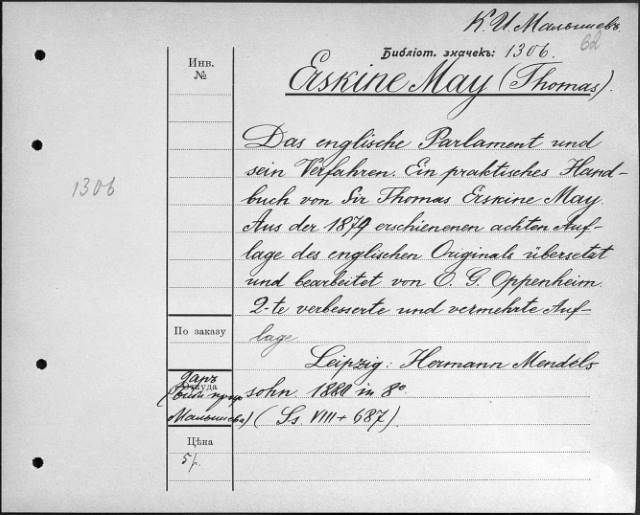 К. И. Малышевъ
62
Библіот. значекъ: 1306.
Инв.
№
Erskine May (Thomas).
1306
Das englische Parlament und
sein Verfahren. Ein praktisches Hand-
buch von Sir Thomas Erskine May.
Aus der 1879 erschienenen achten Auf-
lage des englischen Originals übersetzt
und bearbeitet von O. G. Oppenheim.
2-te verbesserte und vermehrte Auf-
lage
По заказу
Leipzig: Hermann Mendels
sohn 1880 in 8°
(Ss. VIII + 687).
Даръ
Откуда
Малышева)
Цѣна
5 р.